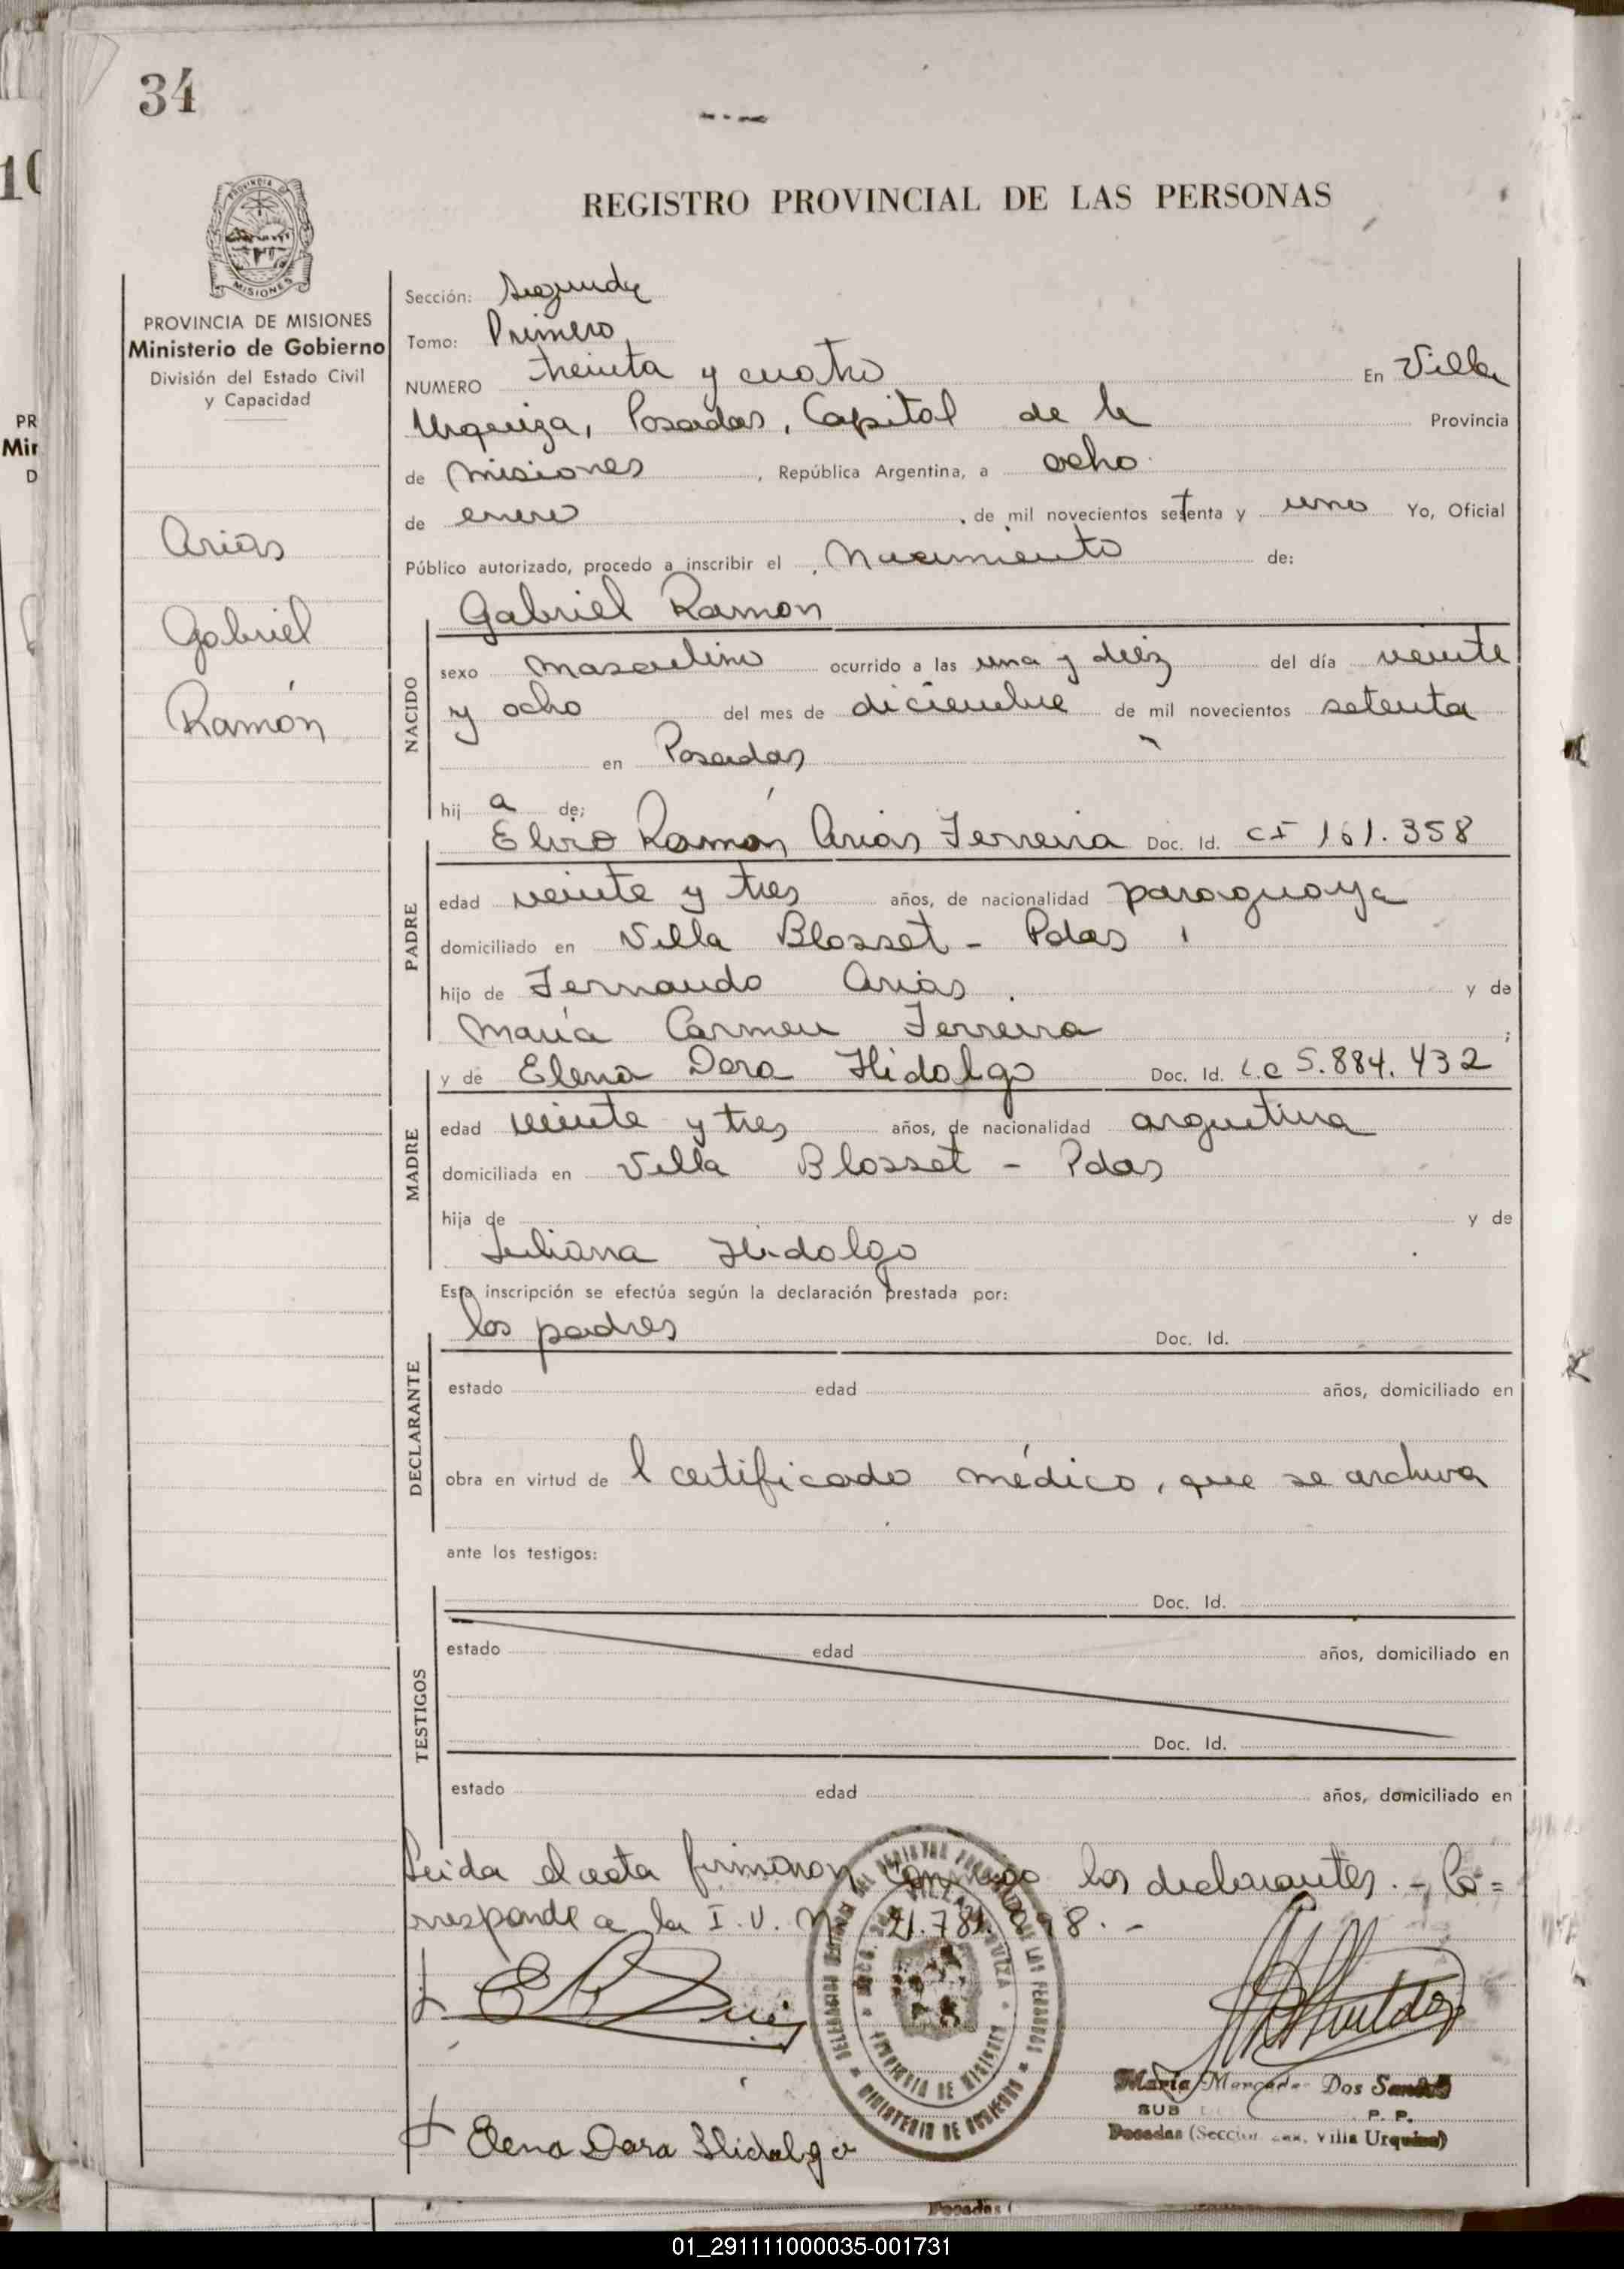 34
REGISTRO PROVINCIAL DE LAS PERSONAS
PROVINCIA DE
MISIONES
PROVINCIA DE MISIONES
Ministerio de Gobierno
División del Estado Civil
y Capacidad
Arias
Gabriel
Ramón
Sección: Segunda
Tomo: Primero
NUMERO treinta y cuatro En Villa
Urquiza, Posadas, Capital de la Provincia
de Misiones, República Argentina, a ocho
de enero de mil novecientos setenta y uno Yo, Oficial
Público autorizado, procedo a inscribir el Nacimiento de:
Gabriel Ramon
NACIDO
sexo masculino ocurrido a las una y diez del día veinte
y ocho del mes de diciembre de mil novecientos setenta
en Posadas
hij a de;
Elvio Ramón Arias Ferreira Doc. Id. CI 161.358
PADRE
edad veinte y tres años, de nacionalidad paraguaya
domiciliado en Villa Blosset - Pdas
hijo de Fernando Arias y de
María Carmen Ferreira ;
y de Elena Dora Hidalgo Doc. Id. L.C 5.884.432
MADRE
edad veinte y tres años, de nacionalidad argentina
domiciliada en Villa Blosset - Pdas
hija de y de
Juliana Hidalgo
Esta inscripción se efectúa según la declaración prestada por:
los padres Doc. Id.
DECLARANTE
estado edad años, domiciliado en
obra en virtud de l certificado médico, que se archiva
ante los testigos:
Doc. Id.
TESTIGOS
estado edad años, domiciliado en
Doc. Id.
estado edad años, domiciliado en
Leida el acta firmaron conmigo los declarantes. - Co=
rresponde a la I.U. N 21.781.098. -
Elena Dora Hidalgo
MINISTERIO DE GOBIERNO
PROVINCIA DE MISIONES
María Mercedes Dos Santos
SUB P. P.
Posadas (Sección Villa Urquiza)
Posadas (
01_291111000035-001731